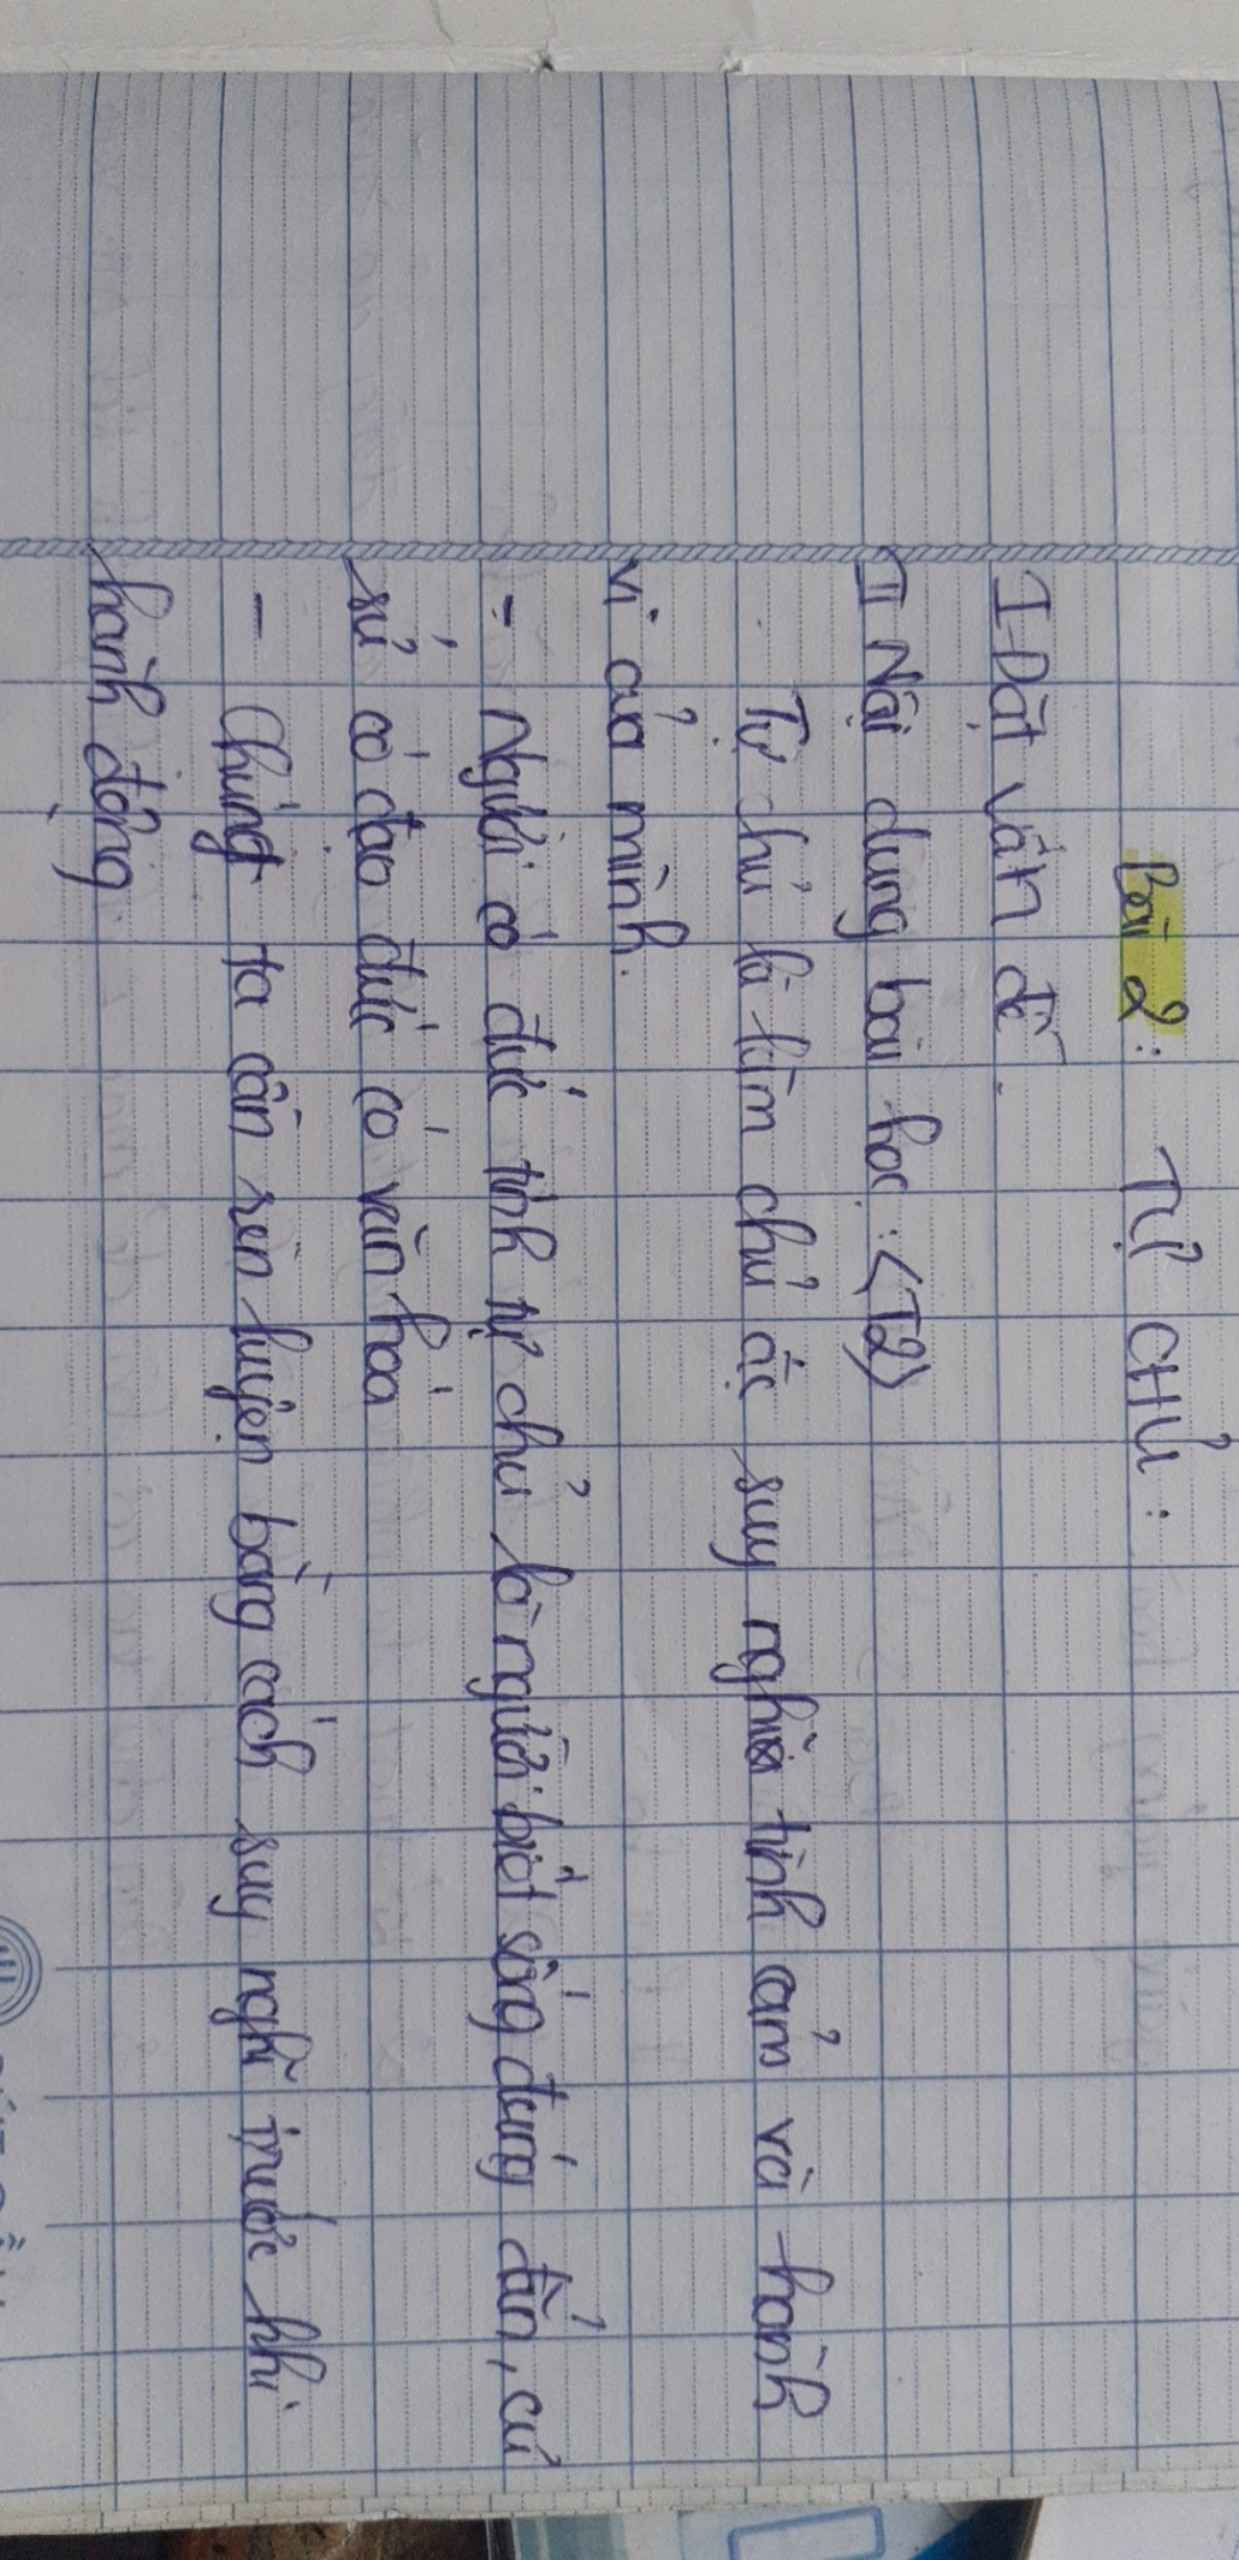 Bài 2: TỰ CHỦ:
I-Đặt vấn đề.
II Nội dung bài học: <T2>
Tự chủ là làm chủ đc suy nghĩ tình cảm và hành
vi của mình.
- Người có đức tính tự chủ là người biết sống đúng đắn, cư
sử có đạo đức có văn hoá
- Chúng ta cần rèn luyện bằng cách suy nghĩ trước khi
hành động